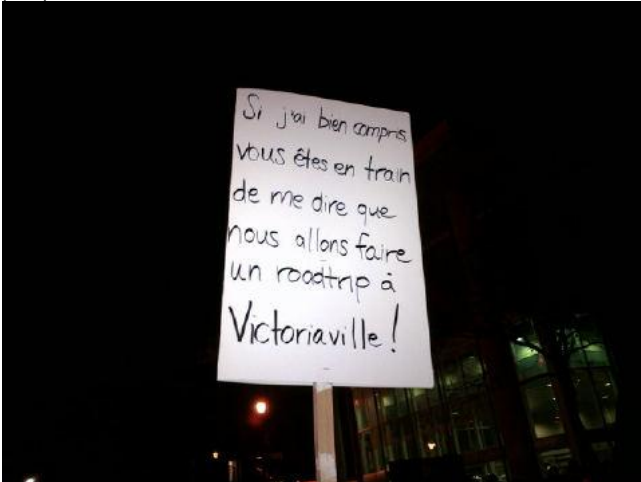 Si j'ai bien compris
vous êtes en train
de me dire que
nous allons faire
un roadtrip à
Victoriaville !